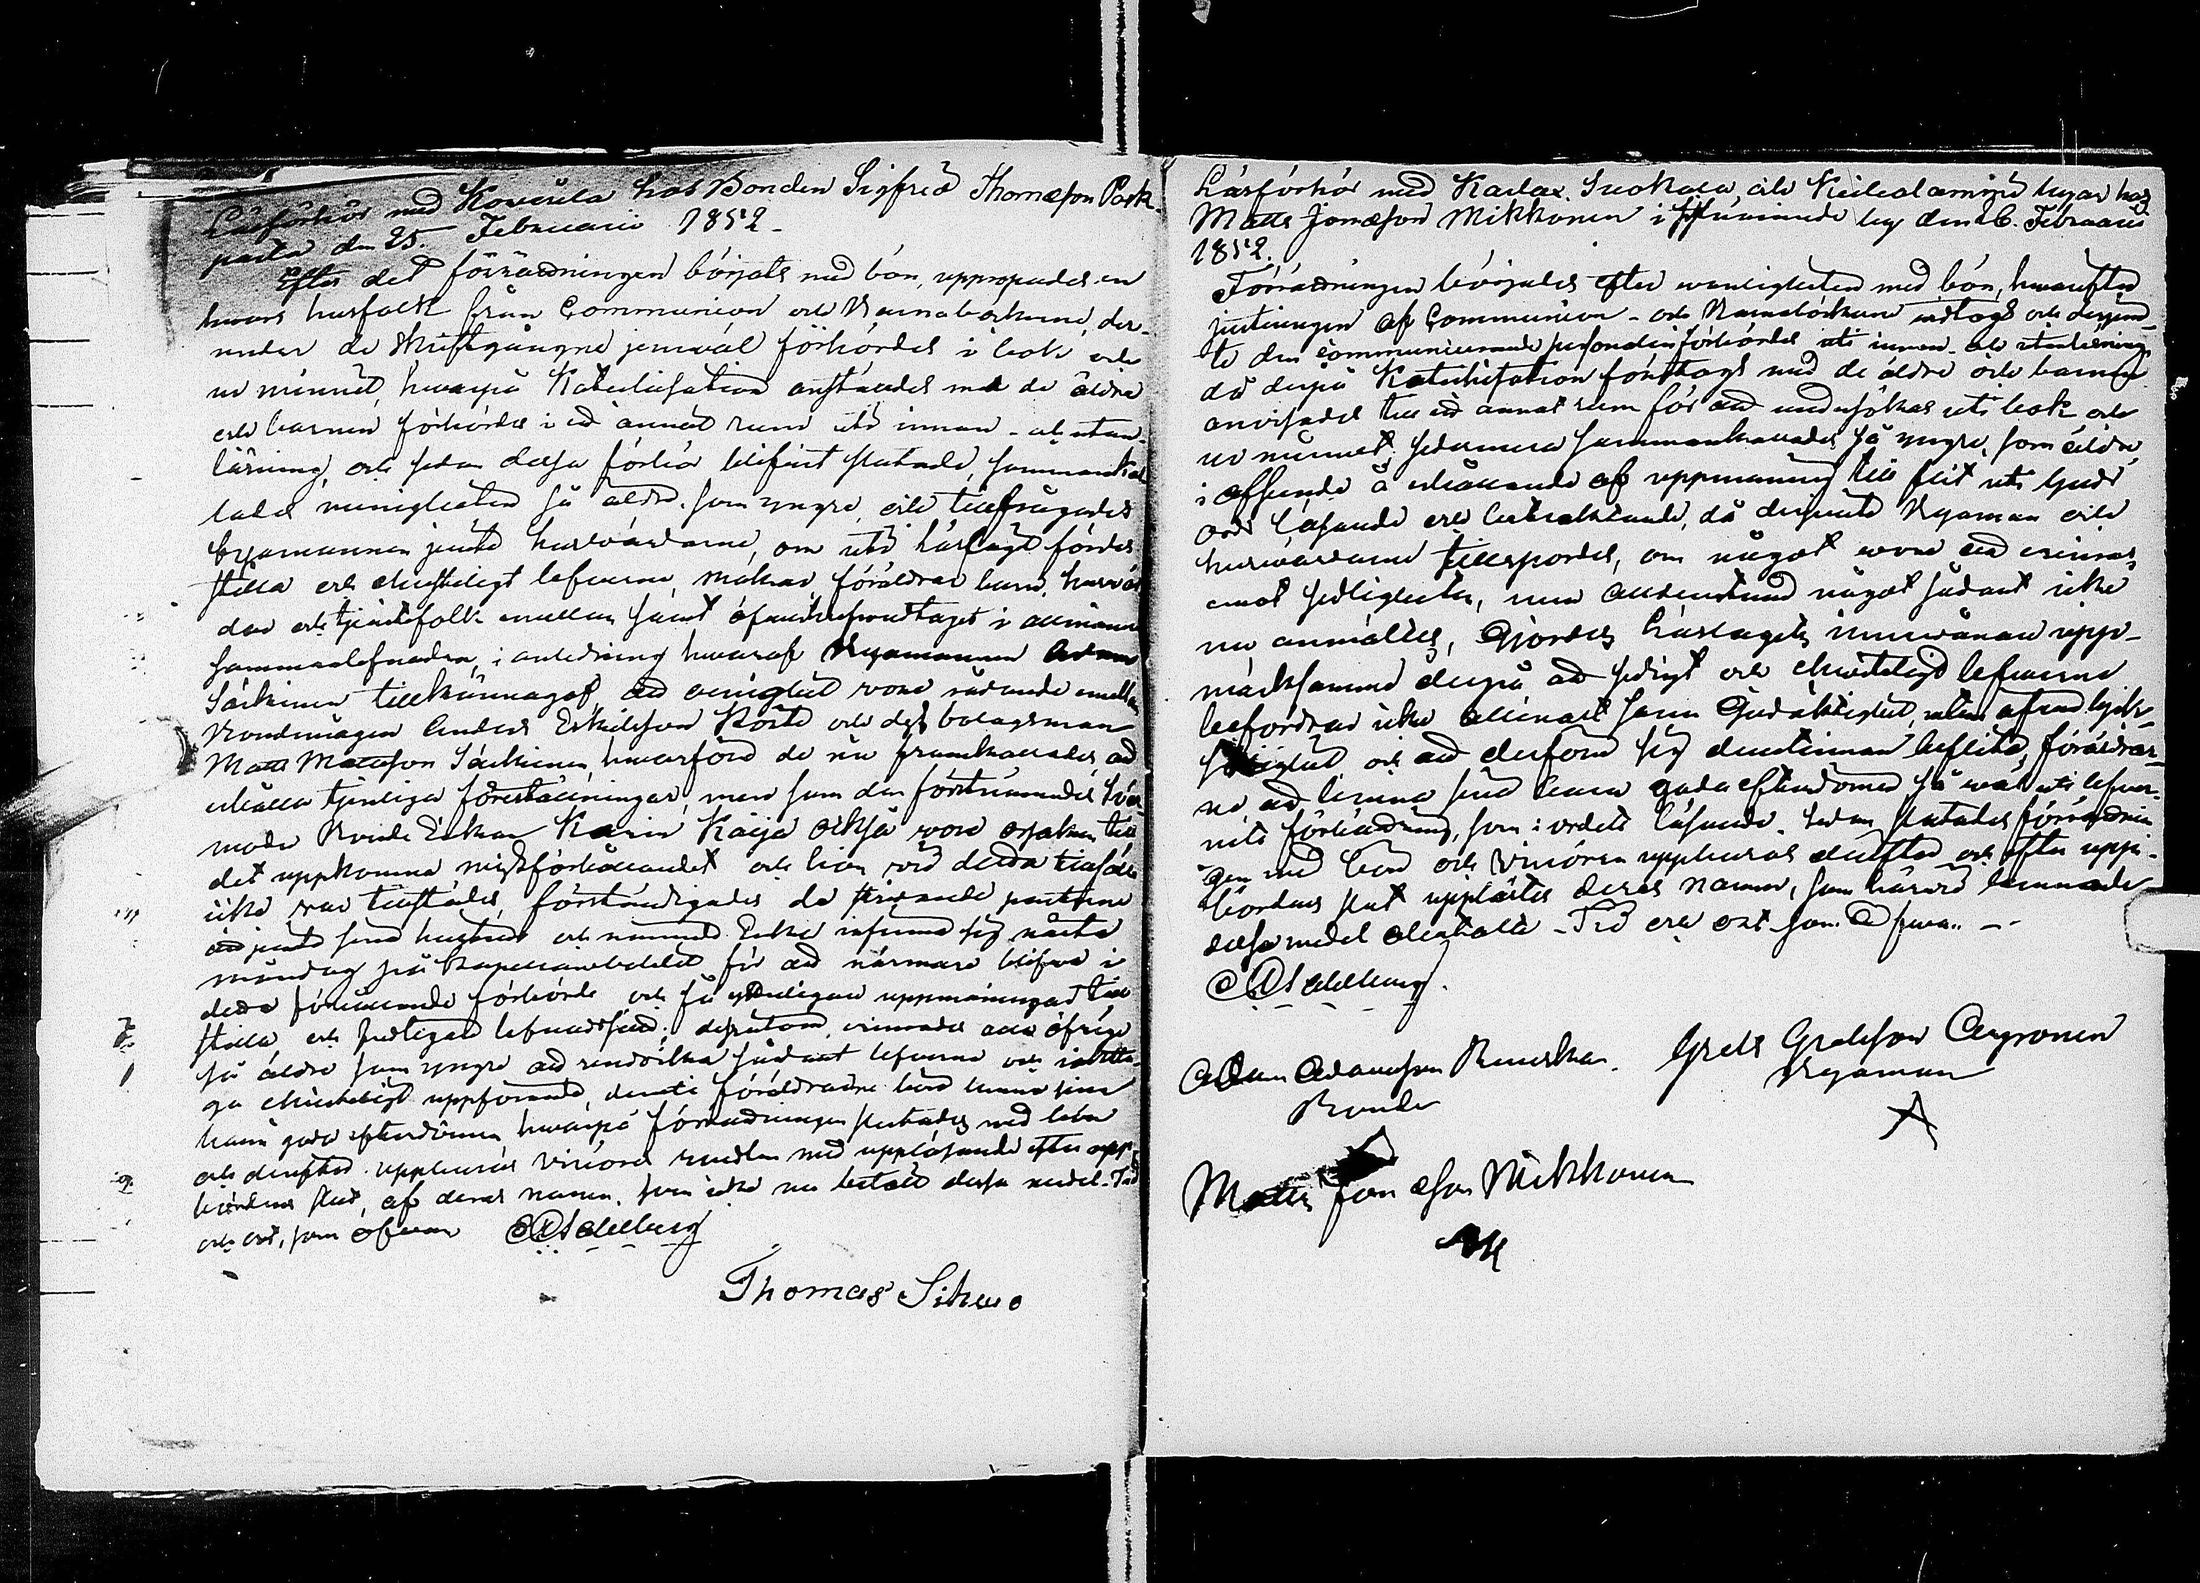 Läsförhör med Kovsula hos Bonden Sigfred Thomæson Park-
pasta den 25. Februarii 1852.
Efter det förrättningen börjats med bön, uppropades en
hwars husfolk från Communion och Barnaböckerne, der-
under de skriftgångne jemväl förhördes i bok och
ur minnet, hwarpå Katechisation anställdes med de äldre
och barnen förhördes i ett annat rum uti innan- och utan-
läsning, och sedan dessa förhör blifvit slutade, samman kal-
lades menigheten så äldre som yngre, och tillfrågades
byamannen jemte husvärdarne, om uti läslaget fördes
stilla och christeligt lefverne, makar, föräldrar barn, husvär
dar och tjenstefolk emellan samt i allmänna
sammanlefnaden, i anledning hwaraf Byamannen Adam
Särkinen tillkännagaf att oenighet vore rådande emellan
Bondemågen Anders Eskilsson och dess bolagsman
Matts Mattsson Särkinen, hwarföre de nu framkallades, att
erhålla tjenliga föreställningar, men som den förstnämndes Svär-
moder Bonde Enkan Karin Kaija också vore orsaken till
det uppkomna missförhållandet och hon vid detta tillfälle
icke var tillstädes, förständigades de stridande parterne
att jemte sina hustrur och nämnde Enka infinna sig nästa
måndag på Kapellansbostället för att närmare blifva i
detta förhållande förhörde och få ytterligare uppmaningar till
stilla och sedligare lefnadssätt; dessutom erinrades alla öfriga
så äldre som yngre att undvika sådant lefverne och iaktta-
ga christeligt uppförande, deruti föräldrarne böra lemna sina
barn goda efterdömen, hwarpå förrättningen slutades med bön
och derefter uppburos Vicários med uppläsande efter upp-
bördens slut, af deras namn, som icke nu betalt dessa medel. Tid
och ort, som ofvan
Thomas Sihvo
Läsförhör med Karlax, Suokala, och byar hos
Matts Jonæson Mikkonen i sistnämnde by den 26. Februarii
1852.
Förrättningen börjades efter wanligheten med bön, hwarefter
justeringen af Communion- och Barnaböckerne vidtogs och derjem-
te den communicerande förhördes uti innan- och utanläsning,
då derpå Katechisation företogs med de äldre och barnen
anvisades till ett annat rum för att undersökas uti bok och
ur minnet, sedermera sammankallades så yngre, som äldre,
i afseende å erhållande af uppmaning till flit uti Guds
ords läsande och betraktande, då derjemte Byaman och
husvärdarne tillspordes, om något vore att erinras
emot sedligheten, men alldenstund något sådant icke
nu anmältes, gjordes läslagets innevånare upp-
märksamme derpå att sedigt och christeligt lefverne
befordrar icke allenast sann Gudaktighet, utan äfven
och att derföre sig derom beflita, föräldrar-
ne att lemna sina barn goda efterdömen så wäl uti lefver-
nets förbättring, som i ordets läsande. Sedan slutades förrättnin-
gen med bön och Vicários uppburos derefter, och efter upp-
bördens slut upplästes deras namn, som härvid lemnade
dessa medel obetalte. Tid och ort som ofvan.
Adam Adamsson
Bonde
Grels Grelsson Äyrönen
Byaman
Matts Jonæson Mikkonen